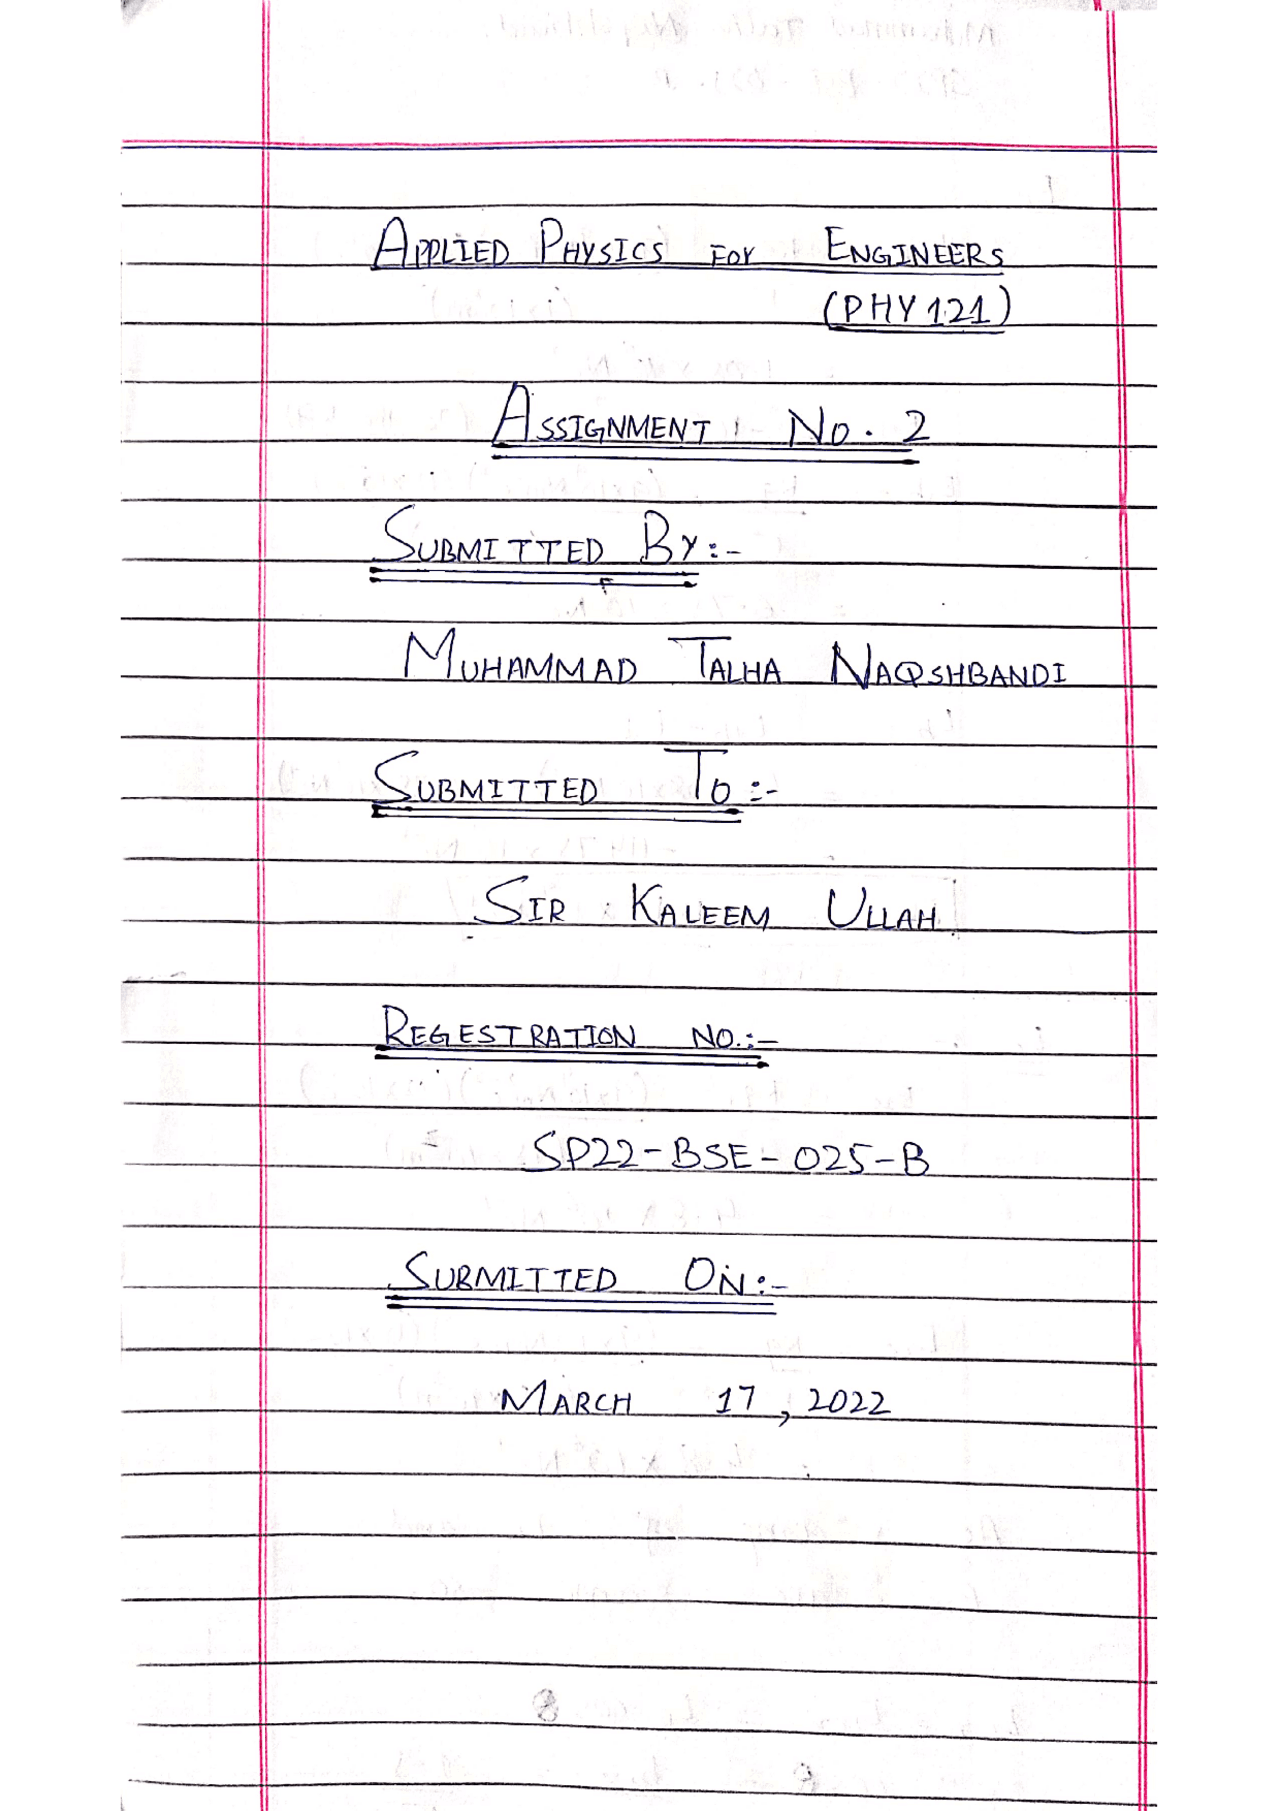 APPLIED PHYSICS FOR ENGINEERS
(PHY121)
ASSIGNMENT No. 2
SUBMITTED BY:-
MUHAMMAD TALHA NAQSHBANDI
SUBMITTED TO:-
SIR KALEEM ULLAH
REGESTRATION NO.:-
SP22-BSE-025-B
SUBMITTED ON:-
MARCH 17, 2022